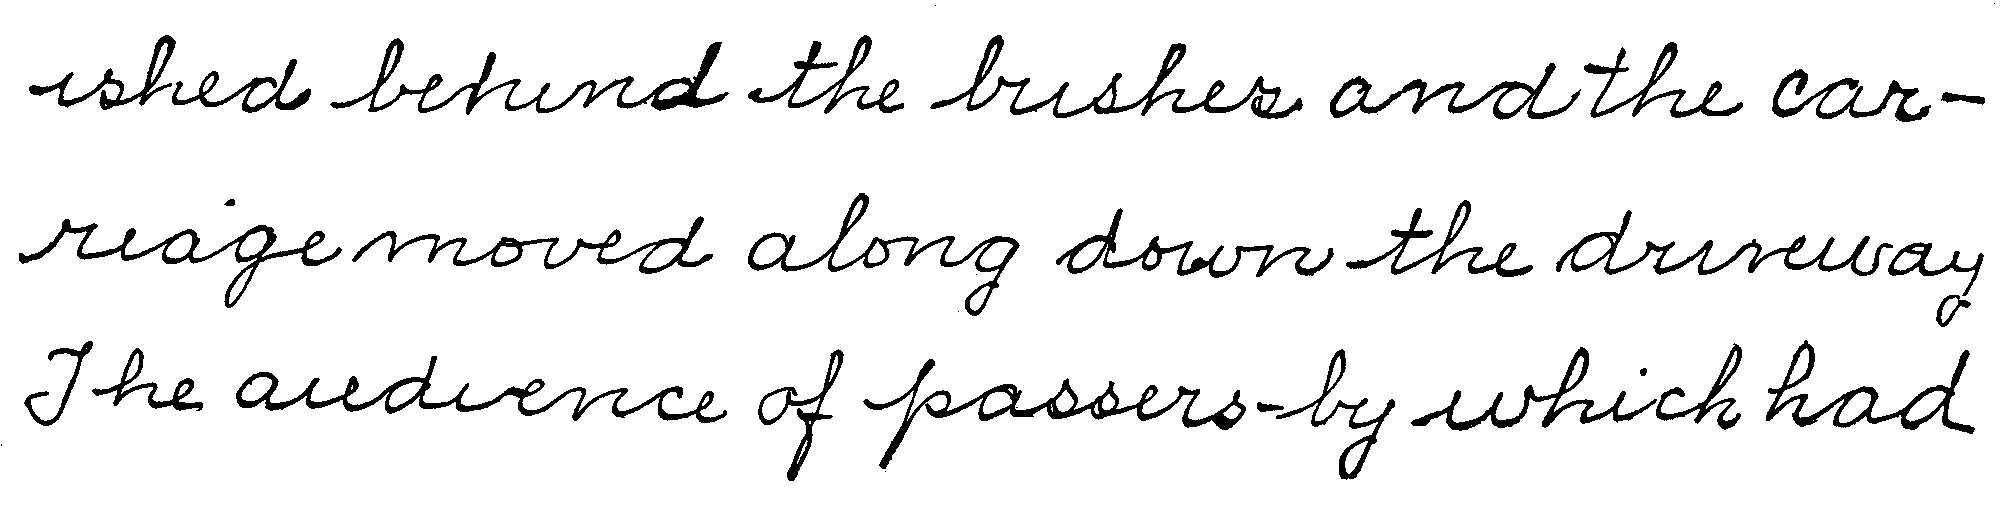 ished behind the bushes and the car-
riage moved along down the driveway
The audience of passers-by which had